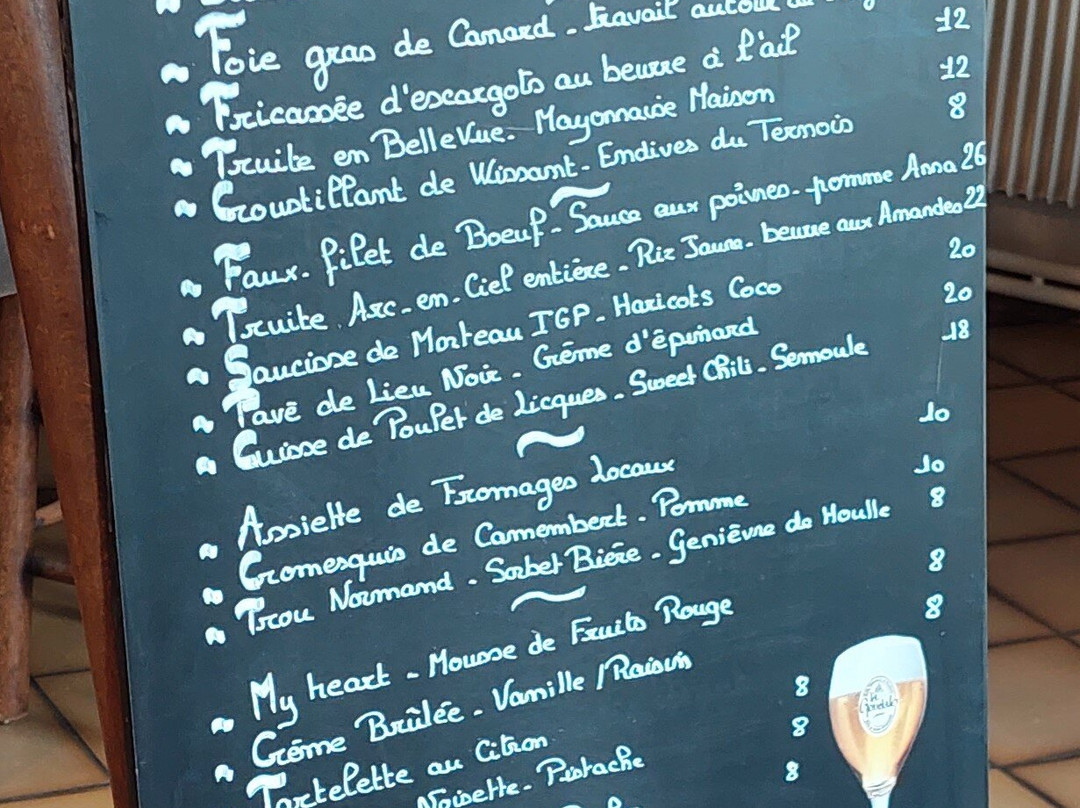 Foie gras de Canard - travail autour du
Fricassée d'escargots au beurre à l'ail 12
Truite en BelleVue - Mayonnaise Maison 12
Croustillant de Wissant - Endives du Ternois 8
Faux-filet de Boeuf - Sauce aux poivres - pomme Anna 26
Truite Arc-en-Ciel entière - Riz Jaune - beurre aux Amandes 22
Saucisse de Morteau IGP - Haricots Coco 20
Pavé de Lieu Noir - Crème d'épinard 20
Cuisse de Poulet de Licques - Sweet Chili - Semoule 18
Assiette de Fromages Locaux 10
Cromesquis de Camembert - Pomme 10
Trou Normand - Sorbet Bière - Genièvre de Houlle 8
My heart - Mousse de Fruits Rouge 8
Crème Brûlée - Vanille / Raisin 8
Tartelette au Citron 8
Noisette - Pistache 8
8